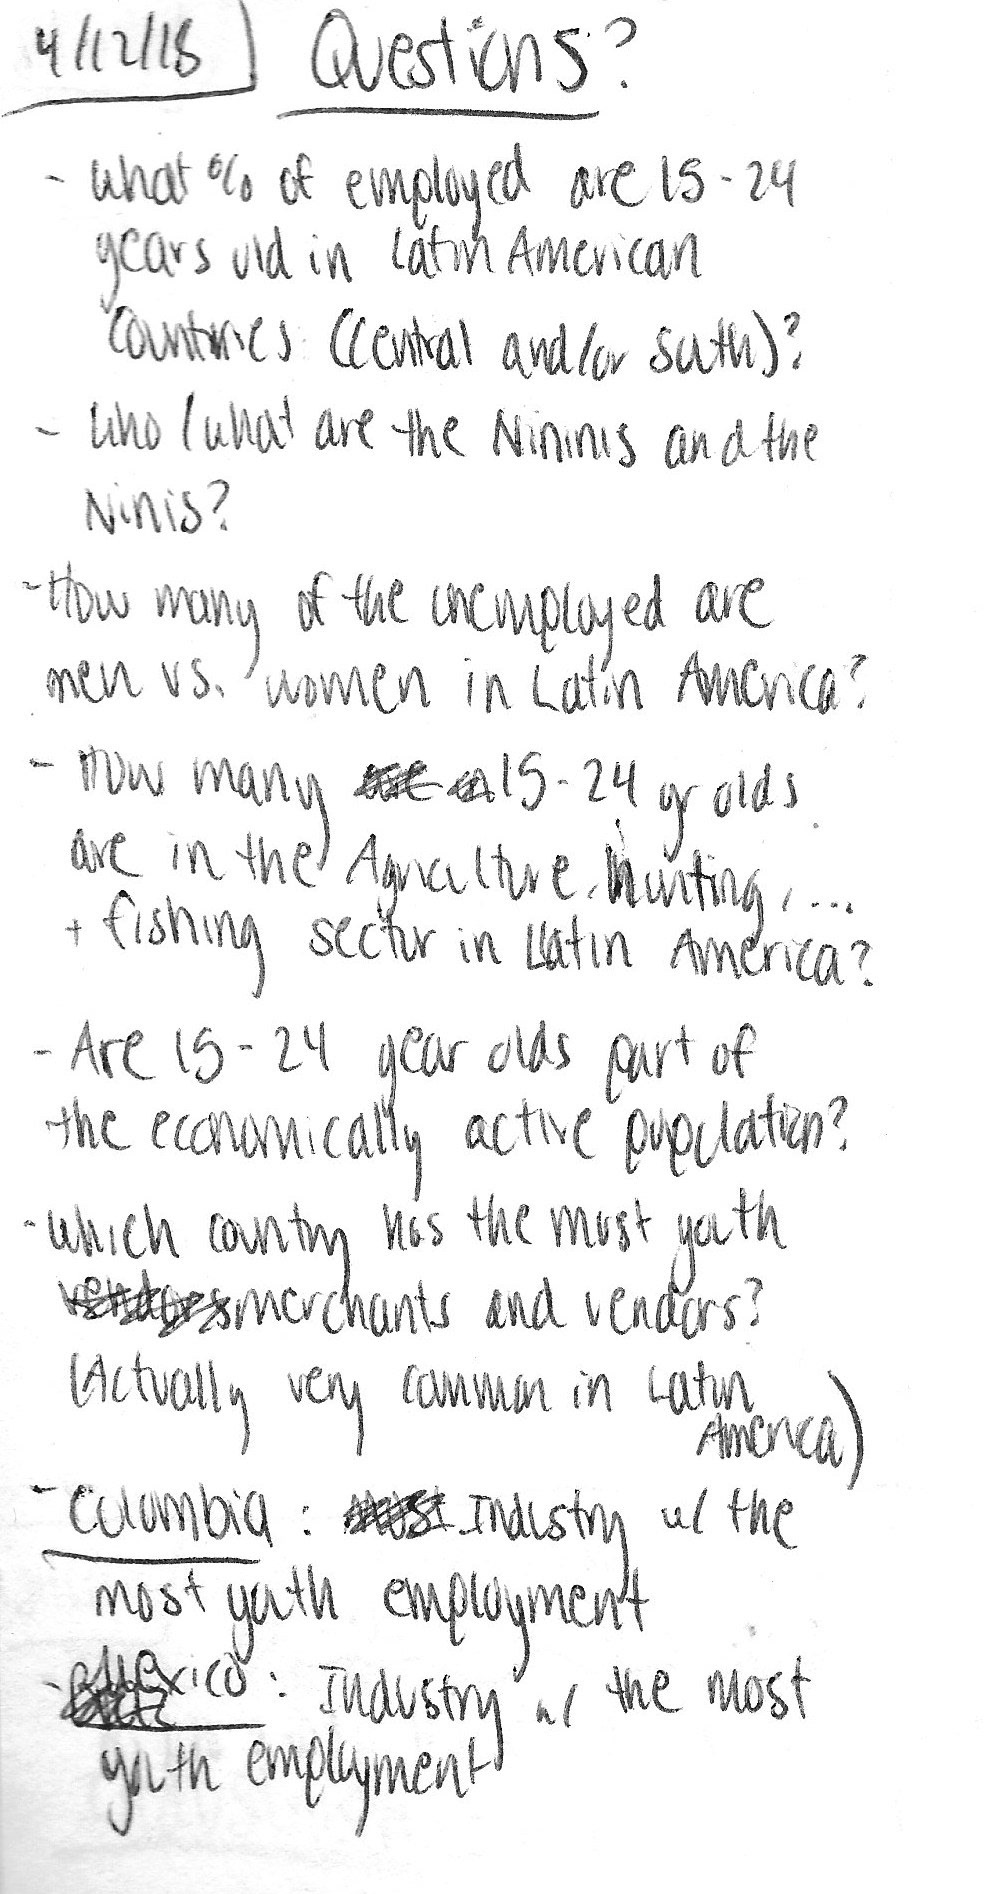 4/12/18 Questions?
- What % of employed are 15-24
years old in Latin American
Countries (Central and/or South)?
- Who / what are the Nininis and the
Ninis?
- How many of the unemployed are
men vs. women in Latin America?
- How many 15-24 yr olds
are in the Agriculture, Hunting, ...
+ fishing sector in Latin America?
- Are 15-24 year olds part of
the economically active population?
- Which country has the most youth
merchants and vendors?
(Actually very common in Latin
America)
- Columbia: Industry w/ the
most youth employment
- Mexico: Industry w/ the most
youth employment